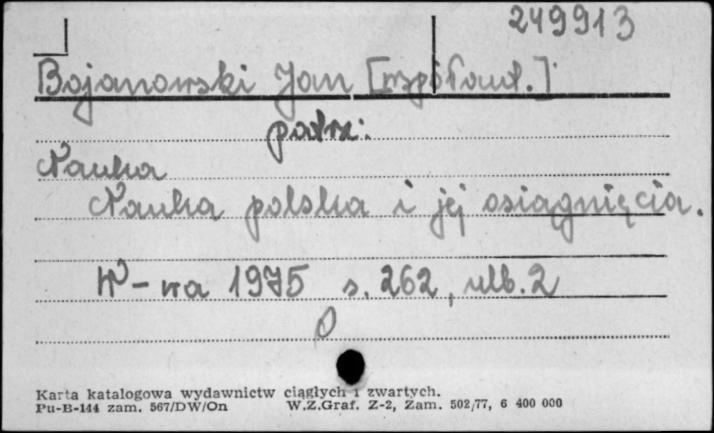 249913
Bojanowski Jan [współaut.]
patrz:
Nauka
Nauka polska i jej osiągnięcia.
W-wa 1975 s. 262, nlb. 2
Karta katalogowa wydawnictw ciągłych i zwartych.
Pu-B-144 zam. 567/DW/On W.Z.Graf. Z-2, Zam. 502/77, 6 400 000